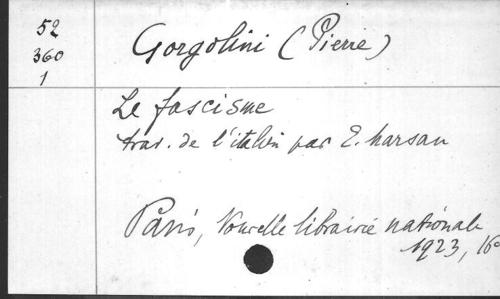 52
360
1
Gorgolini (Pierre)
Le fascisme
trad. de l'italien par E. Marsan
Paris, Nouvelle librairie nationale
1923, 16°